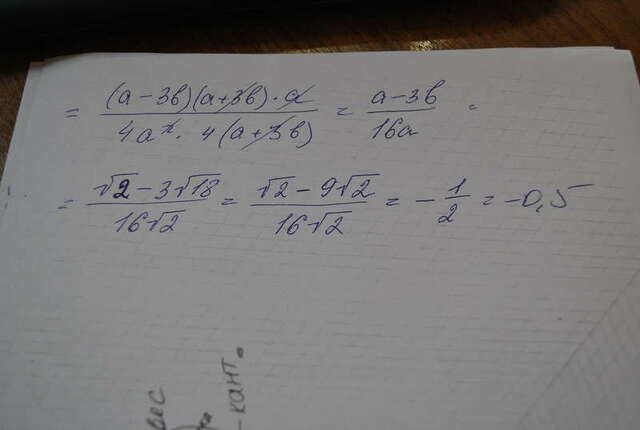 = (a-3в)(a+3в)·a / 4a²·4(a+3в) = a-3в / 16a =
= √2-3√18 / 16√2 = √2-9√2 / 16√2 = -1/2 = -0,5
вес
-кант.